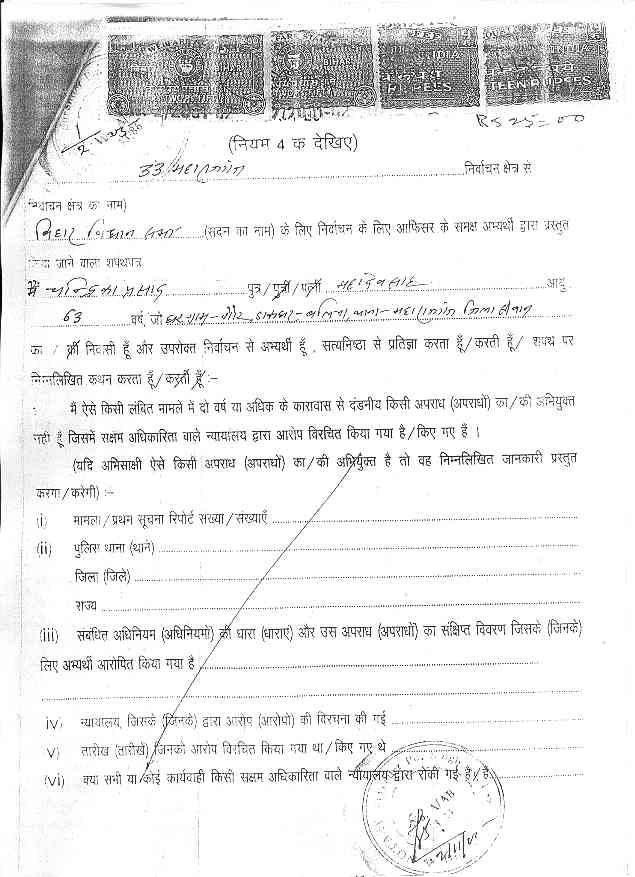 INDIA
RUPEES
INDIA
TEEN RUPEES
RS 25=00
(नियम 4 क देखिए)
33 महाराजगंज निर्वाचन क्षेत्र से
निर्वाचन क्षेत्र का नाम)
बिहार विधान सभा (सदन का नाम) के लिए निर्वाचन के लिए आफिसर के समक्ष अभ्यर्थी द्वारा प्रस्तुत
किया जाने वाला शपथपत्र
मैं चन्द्रिका प्रसाद पुत्र/पुत्री/पत्नी महादेव साह आयु
63 वर्ष, जो थाना-महाराजगंज जिला सीवान
का / की निवासी हूँ और उपरोक्त निर्वाचन से अभ्यर्थी हूँ, सत्यनिष्ठा से प्रतिज्ञा करता हूँ/करती हूँ/ शपथ पर
निम्नलिखित कथन करता हूँ/करती हूँ :-
मैं ऐसे किसी लंबित मामले में दो वर्ष या अधिक के कारावास से दंडनीय किसी अपराध (अपराधों) का/की अभियुक्त
नहीं हूँ जिसमें सक्षम अधिकारिता वाले न्यायालय द्वारा आरोप विरचित किया गया है/किए गए हैं ।
(यदि अभिसाक्षी ऐसे किसी अपराध (अपराधों) का/की अभियुक्त है तो वह निम्नलिखित जानकारी प्रस्तुत
करेगा/करेगी) :-
(i) मामला/प्रथम सूचना रिपोर्ट संख्या/संख्याएँ
(ii) पुलिस थाना (थाने)
जिला (जिले)
राज्य
(iii) संबंधित अधिनियम (अधिनियमों) की धारा (धाराएं) और उस अपराध (अपराधों) का संक्षिप्त विवरण जिसके (जिनके)
लिए अभ्यर्थी आरोपित किया गया है
iv) न्यायालय, जिसके (जिनके) द्वारा आरोप (आरोपों) की विरचना की गई
v) तारीख (तारीखें) जिनको आरोप विरचित किया गया था/किए गए थे
(vi) क्या सभी या कोई कार्यवाही किसी सक्षम अधिकारिता वाले न्यायालय द्वारा रोकी गई है/हैं